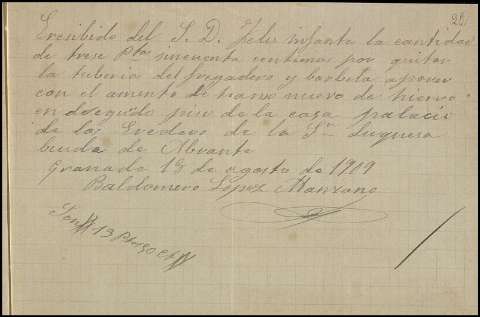 22
Erecibido del S. D. Felis infante la cantidad
de trese Pta sincuenta centimos por quitar
la tuberia del fregadero y bolbela aponer
con el amento de tramo nuevo de hierro
en dosegundo piso de la casa palacio
de los Erederos de la Sra Duquesa
biuda de Abrante
Granada 18 de agosto de 1909
Baldomero López Manzano
Son 13 Ptas 50 Ct